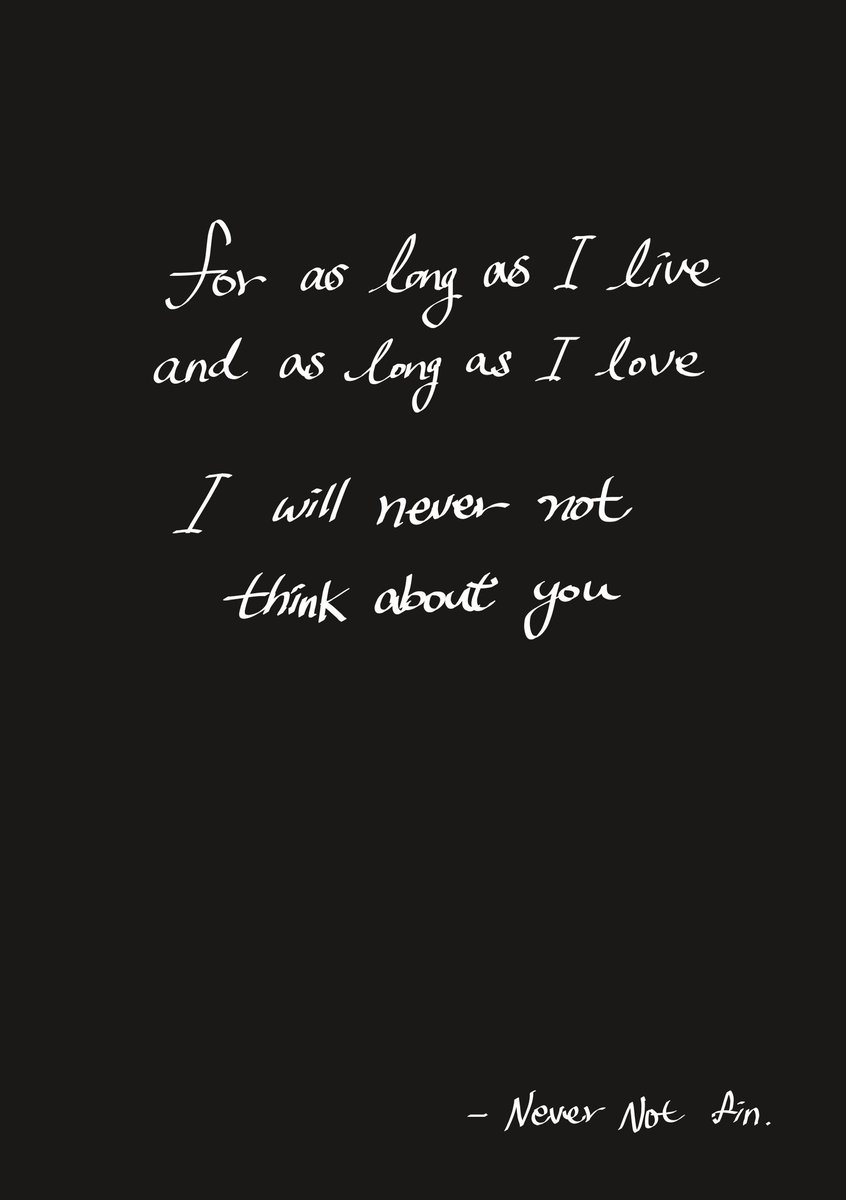 for as long as I live
and as long as I love
I will never not
think about you
- Never Not fin.